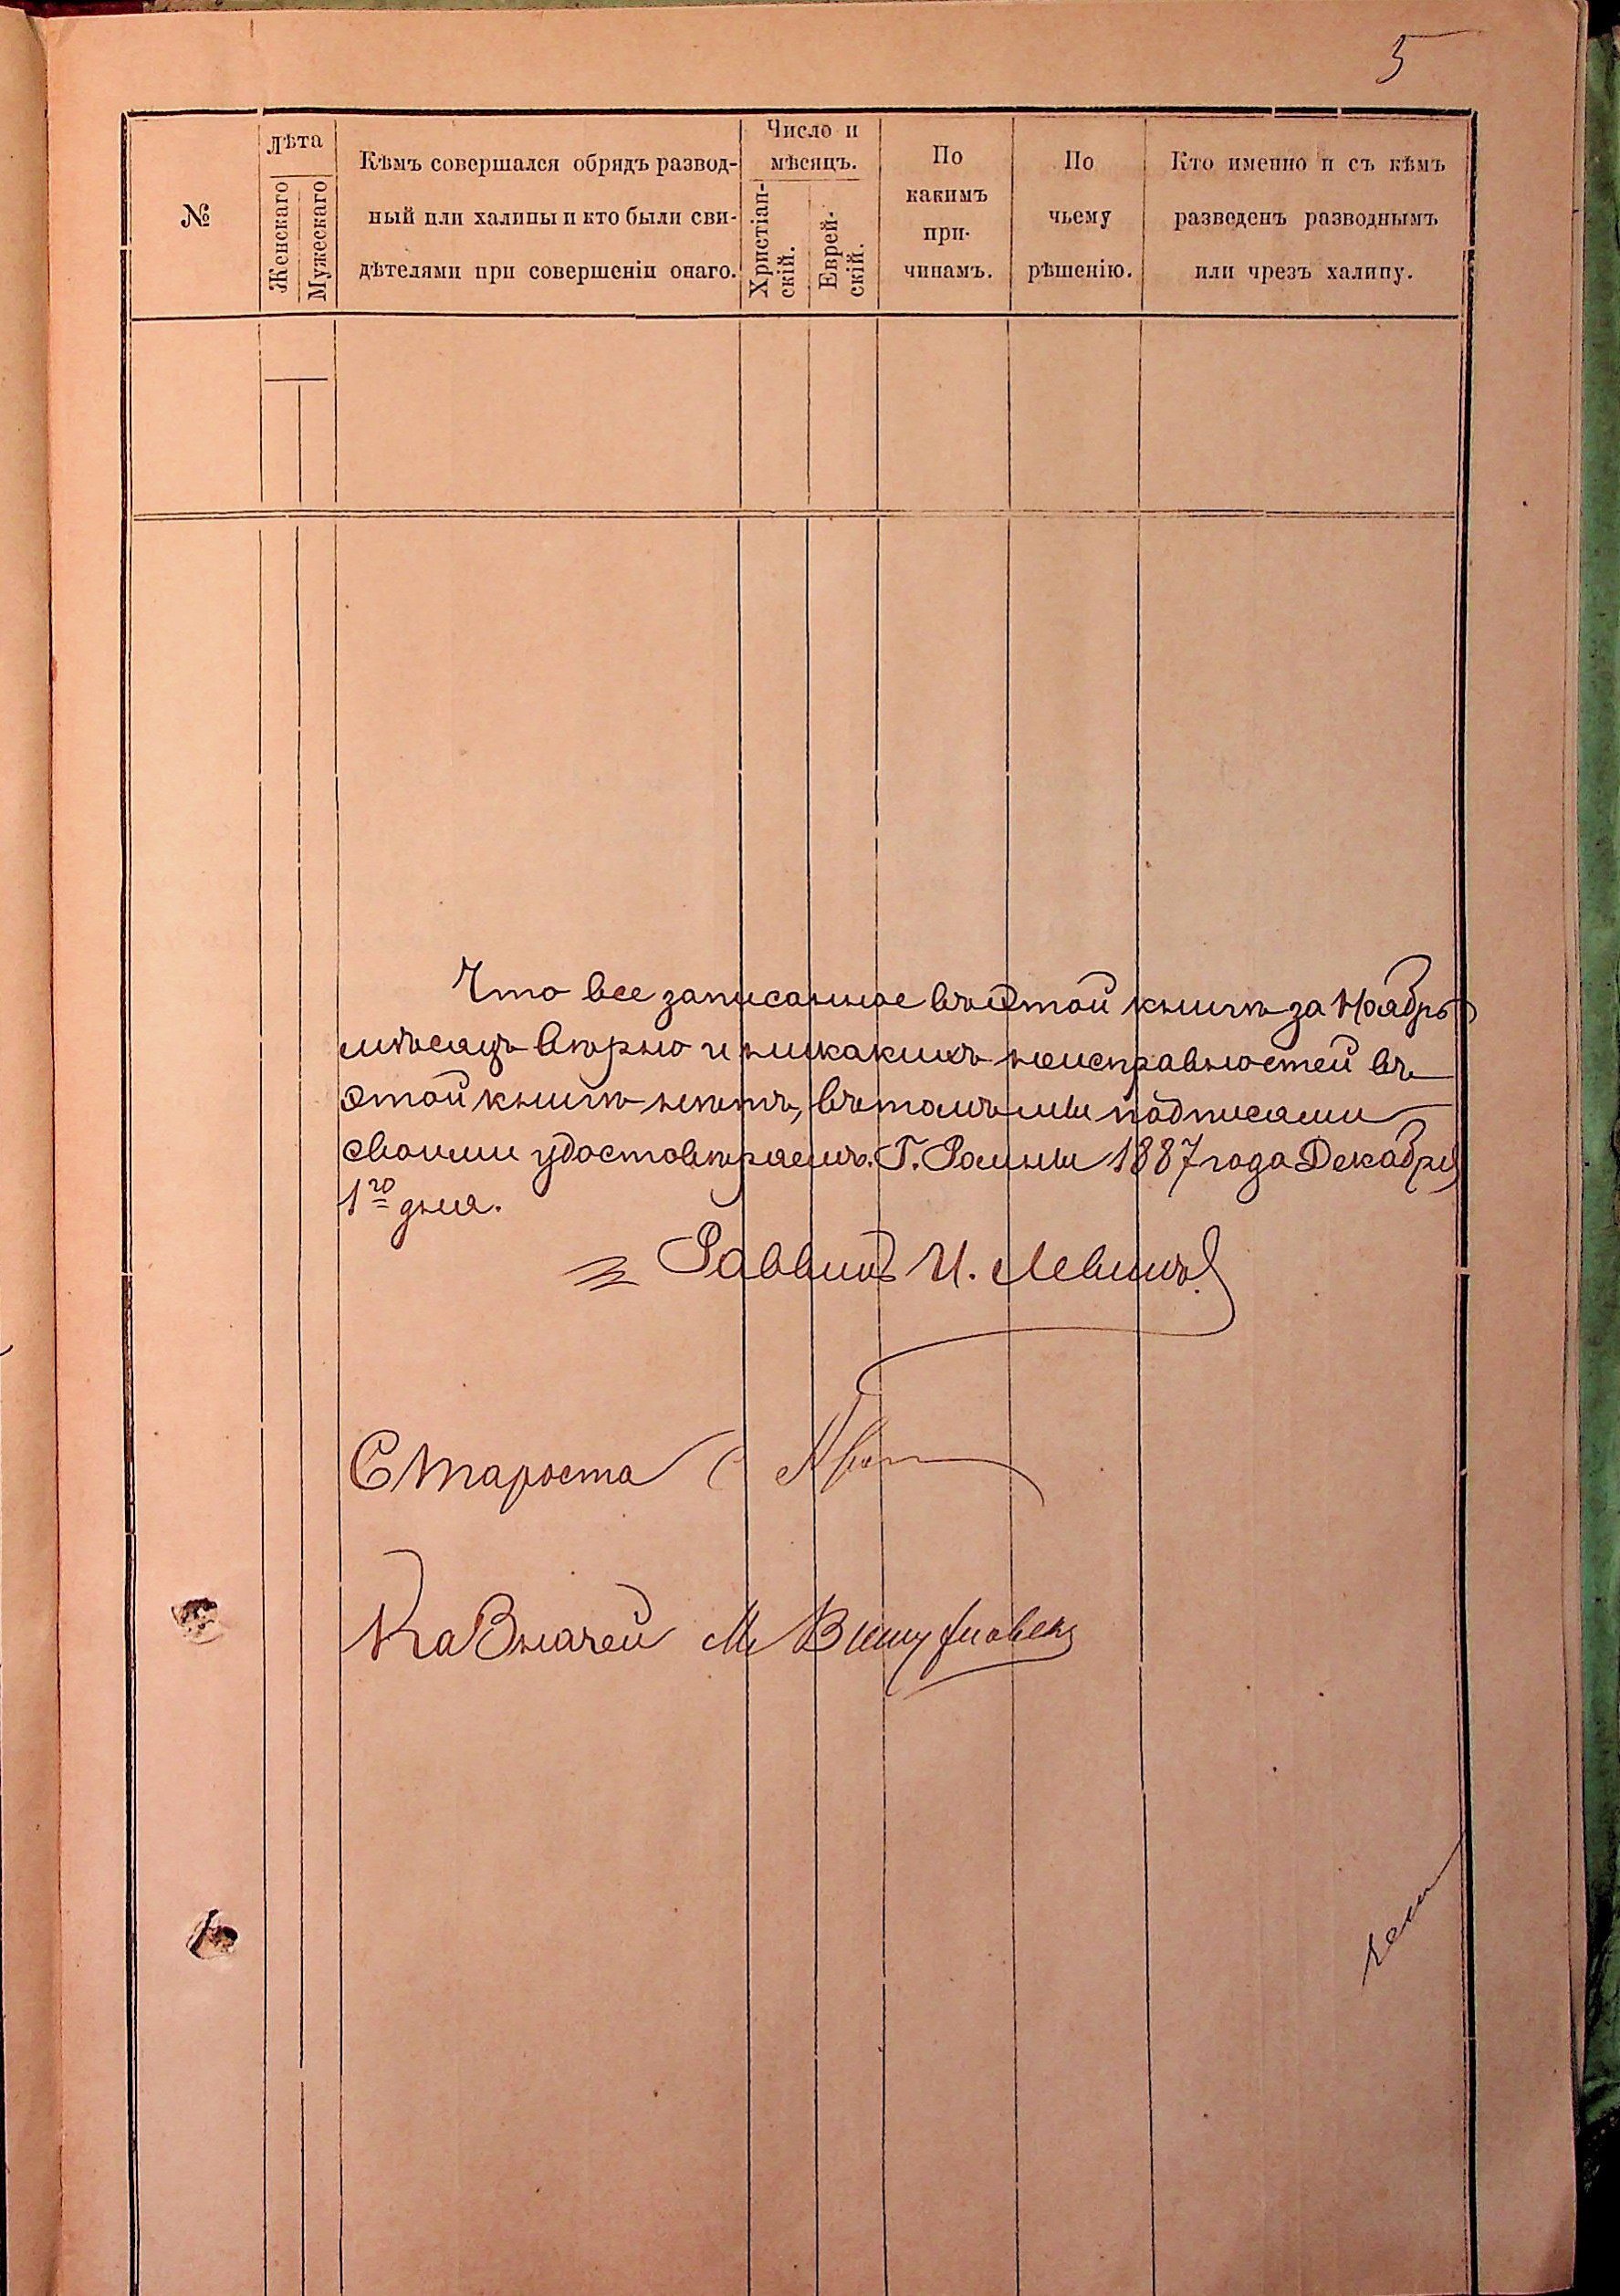 5
№
Лѣта
Женскаго
Мужескаго
Кѣмъ совершался обрядъ развод-
ный или халицы и кто были сви-
дѣтелями при совершеніи онаго.
Число и
мѣсяцъ.
Христіан-
скій.
Еврей-
скій.
По
какимъ
при-
чинамъ.
По
чьему
рѣшенію.
Кто именно и съ кѣмъ
разведенъ разводнымъ
или чрезъ халицу.
Что все записанное въ этой книгѣ за Ноябрь
мѣсяцъ вѣрно и никакихъ неисправностей въ
этой книгѣ нѣтъ, въ томъ мы подписами
своими удостовѣряемъ. Г. Ромны 1887 года Декабря
1го дня.
Раввинъ И. Левинъ
Староста
Казначей М